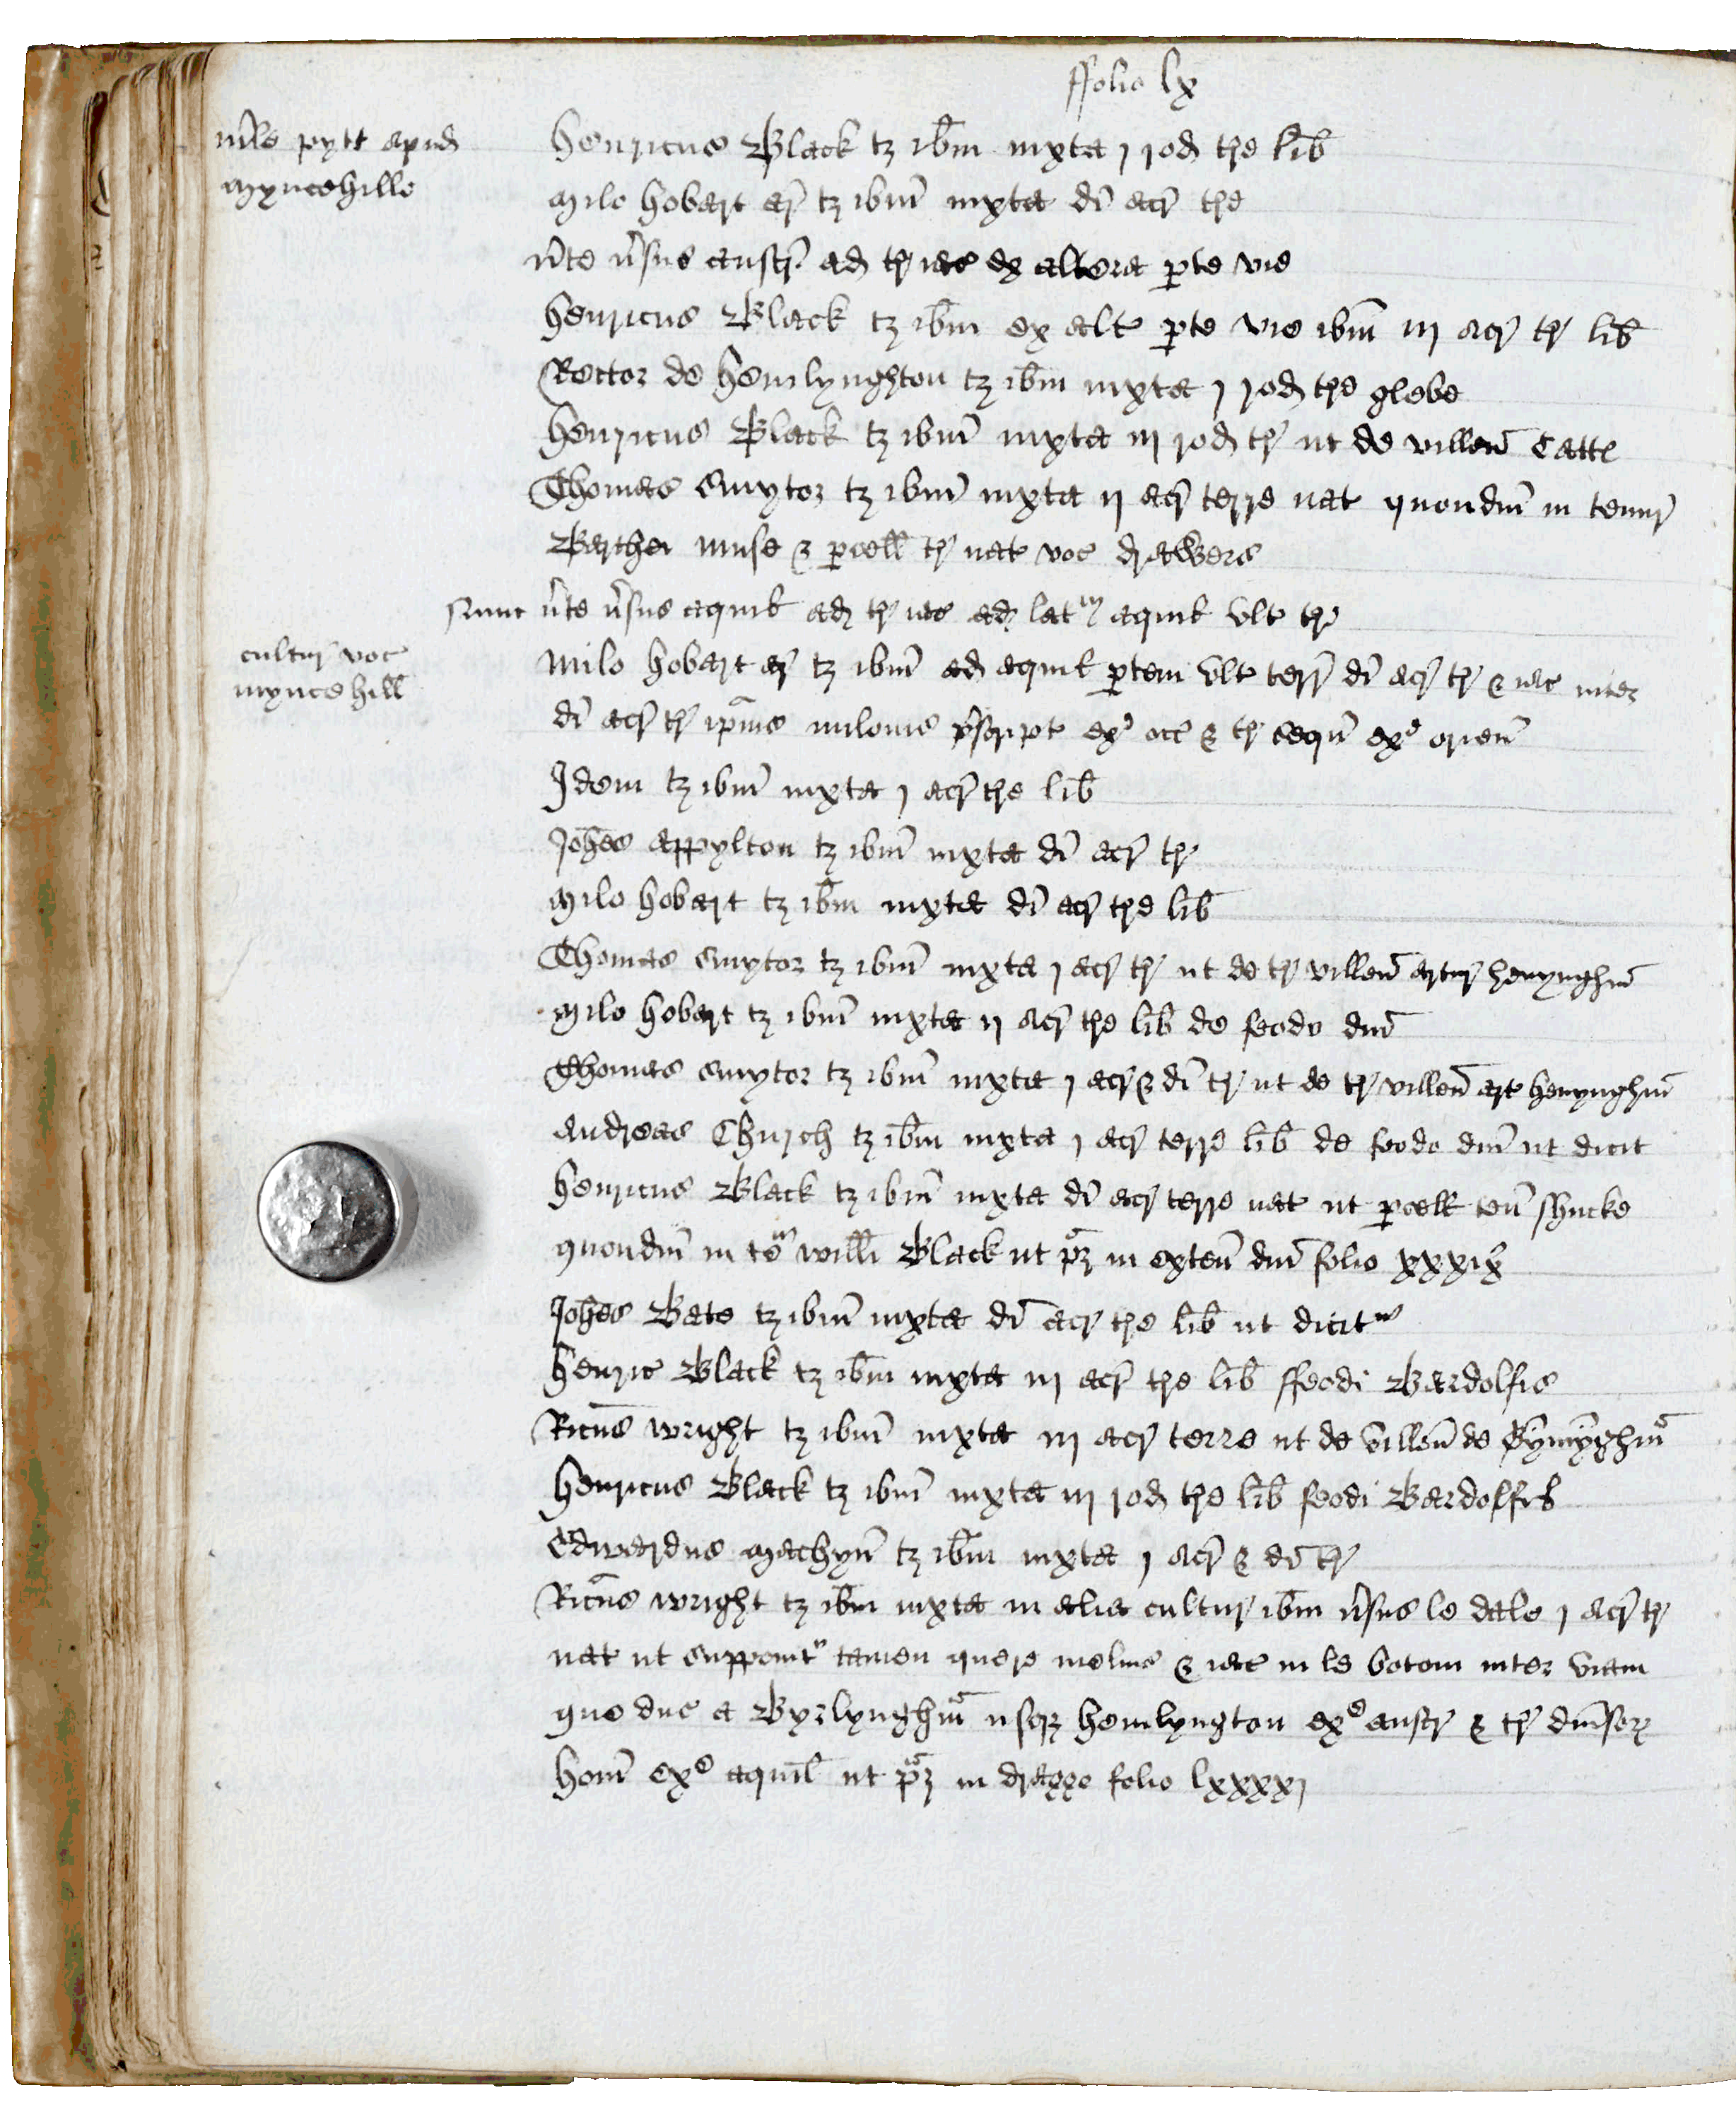 ffolio lx
mle pytt apud
myncehille
henricus Black tz ibm iuxta j rod tre lib
milo hobart ar tz ibm iuxta di acr tre
unte usus austr ad tr iac ex altera pte vie
henricus Black tz ibm ex alt pte vie ibm iij acr tr lib
Rector de hemlynghton tz ibm iuxta j rod tre glebe
henricus Black tz ibm iuxta iij rod tr ut de villen Catte
Thomas Smytor tz ibm iuxta ij acr terre nat quondm in tenur
muse & pcell tr nat voc
Nunc unte usus aquil ad tr iac ad lat aquil ult tr
cultur voc
mynce hill
milo hobart ar tz ibm ad aquil ptem ult terr di acr tr & iac inter
di acr tr ipius milonis pscript ex occ & tr sequn ex orien
Idem tz ibm iuxta j acr tre lib
Johes appylton tz ibm iuxta di acr tr
milo hobart tz ibm iuxta di acr tre lib
Thomas Smytor tz ibm iuxta j acr tr ut de tr villen artur henynghm
milo hobart tz ibm iuxta ij acr tre lib de feodo dni
Thomas Smytor tz ibm iuxta j acr & di tr ut de tr villen art henynghm
Andreas Church tz ibm iuxta j acr terre lib de feodo dni ut dicit
henricus Black tz ibm iuxta di acr terre nat ut pcell ten shucke
quondm in te willi Black ut pz in exten dni folio xxxix
Johes Bate tz ibm iuxta di acr tre lib ut dicit
henric Black tz ibm iuxta iij acr tre lib ffeodi Bardolfie
Ricus wright tz ibm iuxta iij acr terre ut de villen de
henricus Black tz ibm iuxta iij rod tre lib feodi Bardolff
Edwardus machyn tz ibm iuxta j acr & di tr
Ricus wright tz ibm iuxta in alia cultur ibm usus le dale j acr tr
nat ut supponit tamen quere melius & iac in le botom inter viam
que duc a Byrlynghm usqz hemlyngton ex austr & tr diuisor
hom ex aquil ut pz in dragge folio lxxxxj